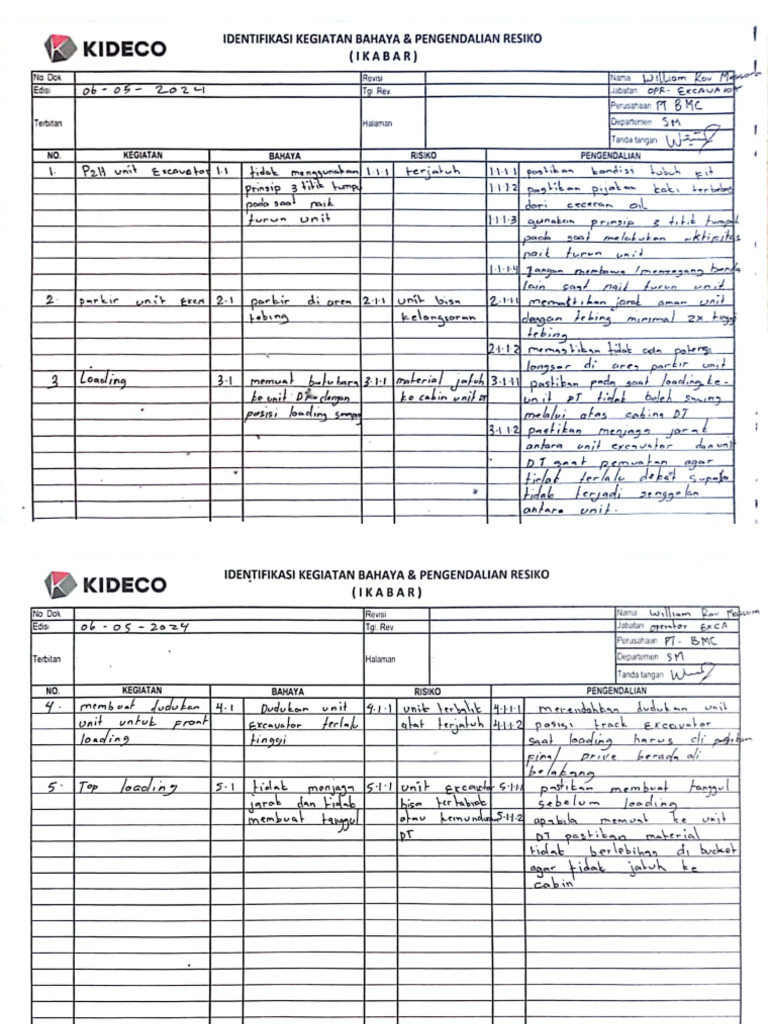 KIDECO
IDENTIFIKASI KEGIATAN BAHAYA & PENGENDALIAN RESIKO
(IKABAR)
No Dok Revisi Nama William Rov
Edisi 06-05-2024 Tgl Rev Jabatan OPR. EXCAVATOR
Perusahaan PT BMC
Terbitan Halaman Departemen SM
Tanda tangan
NO. KEGIATAN BAHAYA RISIKO PENGENDALIAN
1. P2H unit Excavator 1.1 tidak menggunakan 1.1.1 terjatuh 1.1.1.1 pastikan kondisi tubuh fit
prinsip 3 titik tumpu 1.1.1.2 pastikan pijakan kaki terbebas
pada saat naik dari ceceran oil
turun unit 1.1.1.3 gunakan prinsip 3 titik tumpu
pada saat melakukan aktifitas
naik turun unit
1.1.1.4 Jangan membawa/memegang benda
lain saat naik turun unit
2. parkir unit EXCA 2.1 parkir di area 2.1.1 unit bisa 2.1.1.1 memastikan jarak aman unit
tebing kelongsoran dengan tebing minimal 2x tinggi
tebing
2.1.1.2 memastikan tidak ada potensi
longsor di area parkir unit
3 Loading 3.1 memuat batubara 3.1.1 material jatuh 3.1.1.1 pastikan pada saat loading ke-
ke unit DT dengan ke cabin unit DT unit DT tidak boleh swing
posisi loading samping melalui atas cabing DT
3.1.1.2 pastikan menjaga jarak
antara unit excavator dan unit
DT saat pemuatan agar
tidak terlalu dekat supaya
tidak terjadi senggolan
antara unit.
KIDECO
IDENTIFIKASI KEGIATAN BAHAYA & PENGENDALIAN RESIKO
(IKABAR)
No Dok Revisi Nama William Rov
Edisi 06-05-2024 Tgl Rev Jabatan operator EXCA
Perusahaan PT. BMC
Terbitan Halaman Departemen SM
Tanda tangan
NO. KEGIATAN BAHAYA RISIKO PENGENDALIAN
4. membuat dudukan 4.1 Dudukan unit 4.1.1 unit terbalik 4.1.1.1 merendahkan dudukan unit
unit untuk front Excavator terlalu atat terjatuh 4.1.1.2 posisi track Excavator
loading tinggi saat loading harus di pastikan
final drive berada di
belakang
5. Top loading 5.1 tidak menjaga 5.1.1 unit Excavator 5.1.1.1 pastikan membuat tanggul
jarak dan tidak bisa tertabrak sebelum loading
membuat tanggul atau kemunduran 5.1.1.2 apabila memuat ke unit
DT DT pastikan material
tidak berlebihan di bucket
agar tidak jatuh ke
cabin